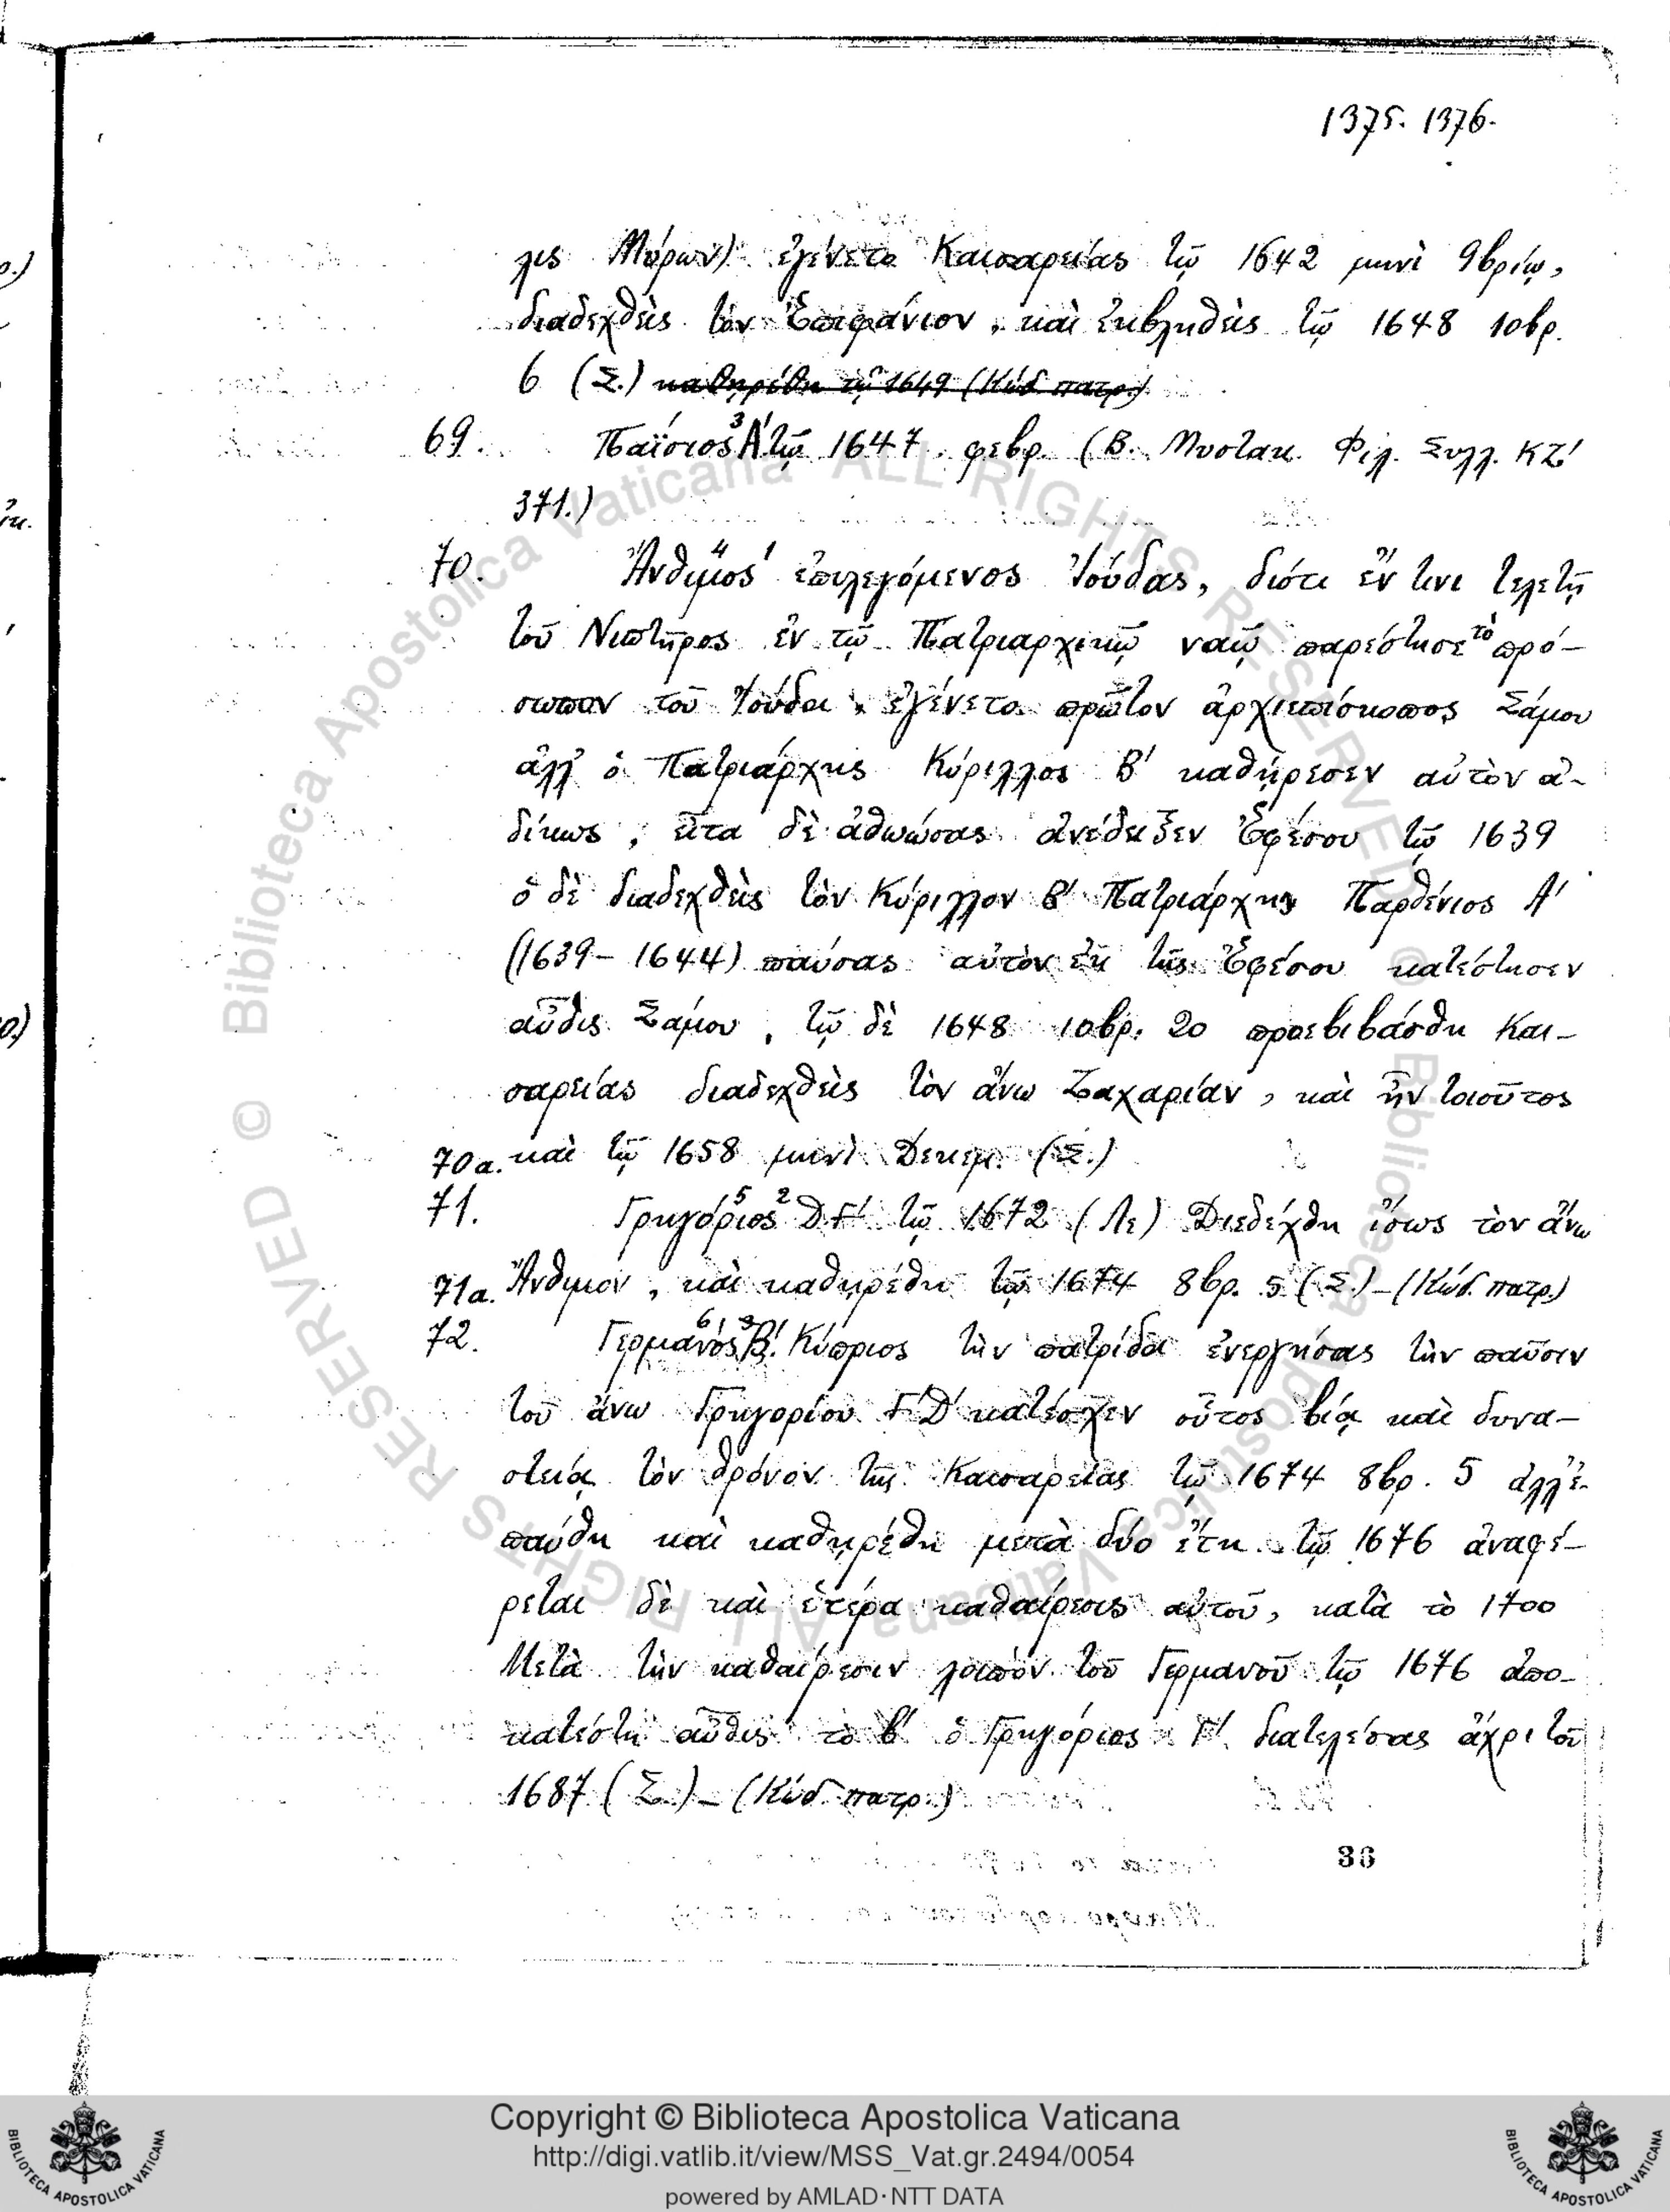 1375. 1376.
λις Μύρων) ἐγένετο Καισαρείας τῷ 1642 μηνὶ 9βρίῳ,
διαδεχθεὶς τὸν Ἐπιφάνιον, καὶ ἐκβληθεὶς τῷ 1648 10βρ.
6 (Σ.) καθῃρέθη τῷ 1649 (Κώδ πατρ.)
69. Παΐσιος 3 Α' τῷ 1647 φεβρ. (Β. Μυστακ. Φιλ. Συλλ. ΚΖ'
371.)
70. Ἄνθιμος 4 1 ἐπιλεγόμενος Ἰούδας, διότι ἔν τινι τελετῇ
τοῦ Νιπτῆρος ἐν τῷ Πατριαρχικῷ ναῷ παρέστησε τὸ πρό-
σωπον τοῦ Ἰούδα, ἐγένετο πρῶτον ἀρχιεπίσκοπος Σάμου
ἀλλ' ὁ Πατριάρχης Κύριλλος Β' καθῄρεσεν αὐτὸν ἀ-
δίκως, εἶτα δὲ ἀθωώσας ἀνέδειξεν Ἐφέσου τῷ 1639
ὁ δὲ διαδεχθεὶς τὸν Κύριλλον Β' Πατριάρχης Παρθένιος Α'
(1639-1644) παύσας αὐτὸν ἐκ τῆς Ἐφέσου κατέστησεν
αὖθις Σάμου, τῷ δὲ 1648 10βρ. 20 προεβιβάσθη Και-
σαρείας διαδεχθεὶς τὸν ἄνω Ζαχαρίαν, καὶ ἦν τοιοῦτος
70a. καὶ τῷ 1658 μηνὶ Δεκεμ. (Σ.)
71. Γρηγόριος 5 2 Δ Γ' τῷ 1672 (Λε) Διεδέχθη ἴσως τὸν ἄνω
71a. Ἄνθιμον, καὶ καθῃρέθη τῷ 1674 8βρ. 5 (Σ.) - (Κώδ. πατρ.)
72. Γερμανός 6 Β'. Κύπριος τὴν πατρίδα ἐνεργήσας τὴν παῦσιν
τοῦ ἄνω Γρηγορίου Γ' Δ' κατέσχεν οὗτος βίᾳ καὶ δυνα-
στείᾳ τὸν θρόνον τῆς Καισαρείας τῷ 1674 8βρ. 5 ἀλλ' ἐ-
παύθη καὶ καθῃρέθη μετὰ δύο ἔτη τῷ 1676 ἀναφέ-
ρεται δὲ καὶ ἑτέρα καθαίρεσις αὐτοῦ, κατὰ τὸ 1700
Μετὰ τὴν καθαίρεσιν λοιπὸν τοῦ Γερμανοῦ τῷ 1676 ἀπο-
κατέστη αὖθις τὸ β' ὁ Γρηγόριος Γ' διατελέσας ἄχρι τοῦ
1687 (Σ.) - (Κώδ. πατρ.)
36
Copyright © Biblioteca Apostolica Vaticana
http://digi.vatlib.it/view/MSS_Vat.gr.2494/0054
powered by AMLAD·NTT DATA
BIBLIOTECA APOSTOLICA VATICANA
BIBLIOTECA APOSTOLICA VATICANA
© Biblioteca Apostolica Vaticana ALL RIGHTS RESERVED
© Biblioteca Apostolica Vaticana ALL RIGHTS RESERVED